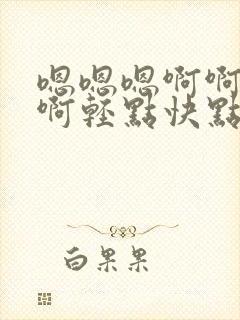 嗯嗯嗯啊啊
啊輕點快點
白果果